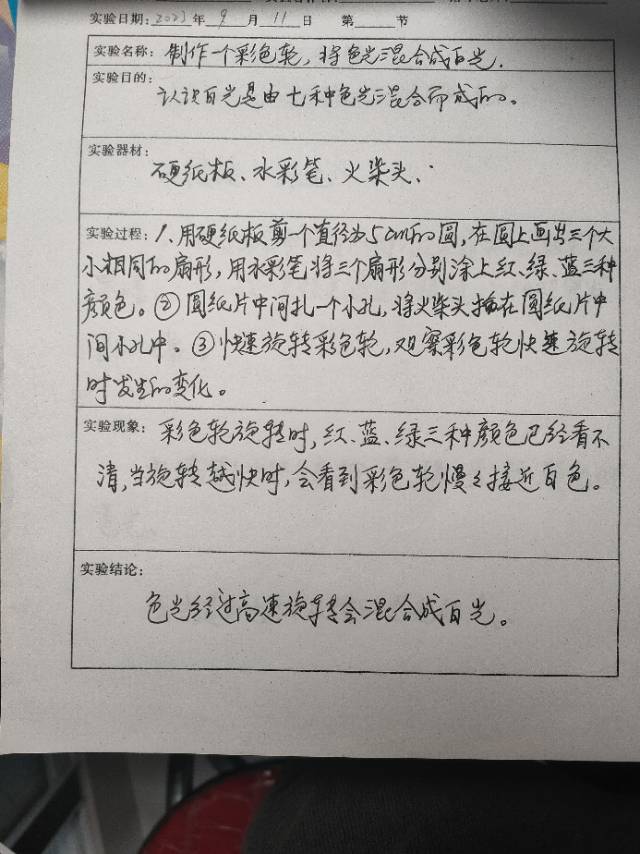 实验日期:2023年9月11日 第 节
实验名称: 制作一个彩色轮，将色光混合成白光.
实验目的:
认识白光是由七种色光混合而成的。
实验器材:
硬纸板、水彩笔、火柴头、
实验过程: 1、用硬纸板剪一个直径为5cm的圆，在圆上画出三个大
小相同的扇形，用水彩笔将三个扇形分别涂上红、绿、蓝三种
颜色。②圆纸片中间扎一个小孔，将火柴头插在圆纸片中
间小孔中。③快速旋转彩色轮，观察彩色轮快速旋转
时发生的变化。
实验现象: 彩色轮旋转时，红、蓝、绿三种颜色已经看不
清，当旋转越快时，会看到彩色轮慢々接近白色。
实验结论:
色光经过高速旋转会混合成白光。